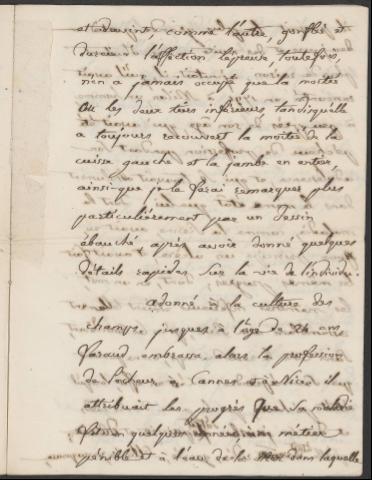 et devint, comme l'autre, gonflé et
durci. l'affection lépreuse, toutefois,
n'en a jamais occupé que la moitié
ou les deux tiers inférieurs, tandisqu'elle
a toujours recouvert la moitié de la
cuisse gauche et la jambe en entier,
ainsi que je le ferai remarquer plus
particulièrement par un dessin
ébauché, après avoir donné quelques
détails rapides sur la vie de l'individu.
adonné à la culture des
champs jusques à l'age de 24 ans
embrassa alors la profession
de Pêcheur à Cannes et à Nice il
attribuait les progrès que sa maladie
fit en quelques à métier
pénible et à l'eau de la mer dans laquelle